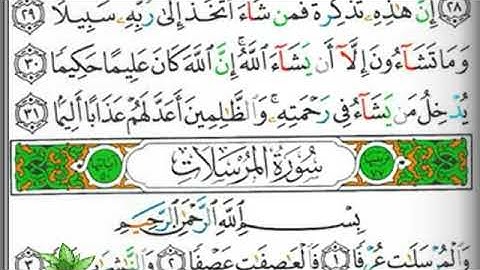 ٢٨ إِنَّ هَٰذِهِۦ تَذْكِرَةٌ فَمَن شَآءَ ٱتَّخَذَ إِلَىٰ رَبِّهِۦ سَبِيلًا ٢٩
وَمَا تَشَآءُونَ إِلَّآ أَن يَشَآءَ ٱللَّهُ ۚ إِنَّ ٱللَّهَ كَانَ عَلِيمًا حَكِيمًا ٣٠
يُدْخِلُ مَن يَشَآءُ فِى رَحْمَتِهِۦ ۚ وَٱلظَّٰلِمِينَ أَعَدَّ لَهُمْ عَذَابًا أَلِيمًا ٣١
سُورَةُ المُرْسَلَاتِ
بِسْمِ ٱللَّهِ ٱلرَّحْمَٰنِ ٱلرَّحِيمِ
وَٱلْمُرْسَلَٰتِ عُرْفًا ١ فَٱلْعَٰصِفَٰتِ عَصْفًا ٢ وَٱلنَّٰشِرَٰتِ ٣